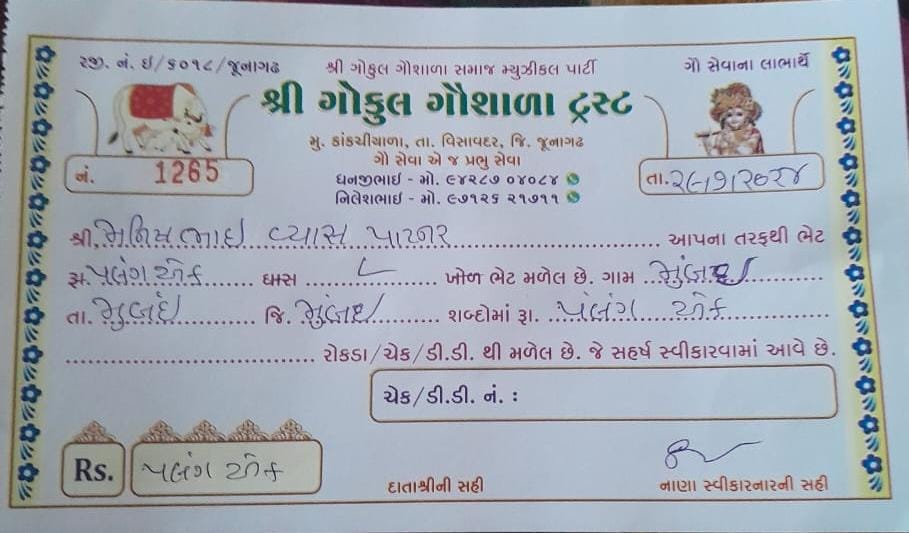 રજી. નં. ઈ/૬૦૧૮/જૂનાગઢ શ્રી ગોકુલ ગૌશાળા સમાજ મ્યુઝીકલ પાર્ટી ગૌ સેવાના લાભાર્થે
શ્રી ગોકુલ ગૌશાળા ટ્રસ્ટ
મુ. કાંકચીયાળા, તા. વિસાવદર, જિ. જૂનાગઢ
ગૌ સેવા એ જ પ્રભુ સેવા
નં. 1265 ધનજીભાઈ - મો. ૯૪૨૮૭ ૦૪૦૮૪ તા.
નિલેશભાઈ - મો. ૯૭૧૨૬ ૨૧૭૧૧
શ્રી, મનિષભાઇ વ્યાસ પાટનર આપના તરફથી ભેટ
રૂા. પલંગ એક ઘાસ ખોળ ભેટ મળેલ છે. ગામ મુંબઇ
તા. મુંબઇ જિ. મુંબઇ શબ્દોમાં રૂા. પલંગ એક
રોકડા/ચેક/ડી.ડી. થી મળેલ છે. જે સહર્ષ સ્વીકારવામાં આવે છે.
ચેક/ડી.ડી. નં. :
Rs. પલંગ એક
દાતાશ્રીની સહી નાણા સ્વીકારનારની સહી